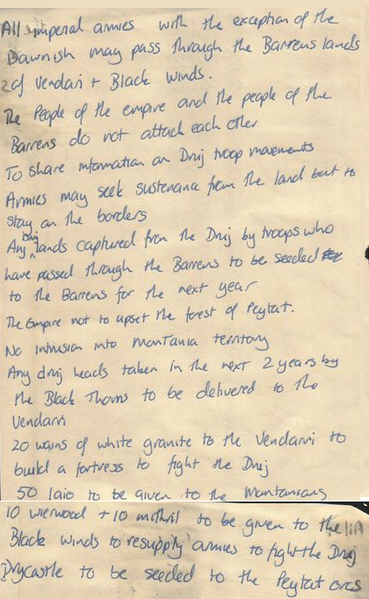 All imperial armies with the exception of the
Dawnish may pass through the Barrens lands
of Vendarri + Black Winds.
The People of the empire and the people of the
Barrens do not attack each other
To share information on Druj troop movements
Armies may seek sustenance from the land but to
stay on the borders
Any Druj lands captured from the Druj by troops who
have passed through the Barrens to be seeded
to the Barrens for the next year
The Empire not to upset the forest of Peytat.
No intrusion into Montania territory
Any druj heads taken in the next 2 years by
the Black Thorns to be delivered to the
Vendarri
20 wains of white granite to the Vendarri to
build a fortress to fight the Druj
50 laio to be given to the Montanians
10 wierwood + 10 mithril to be given to the
Black Winds to resupply armies to fight the Druj
Drycastle to be seeded to the Peytat orcs